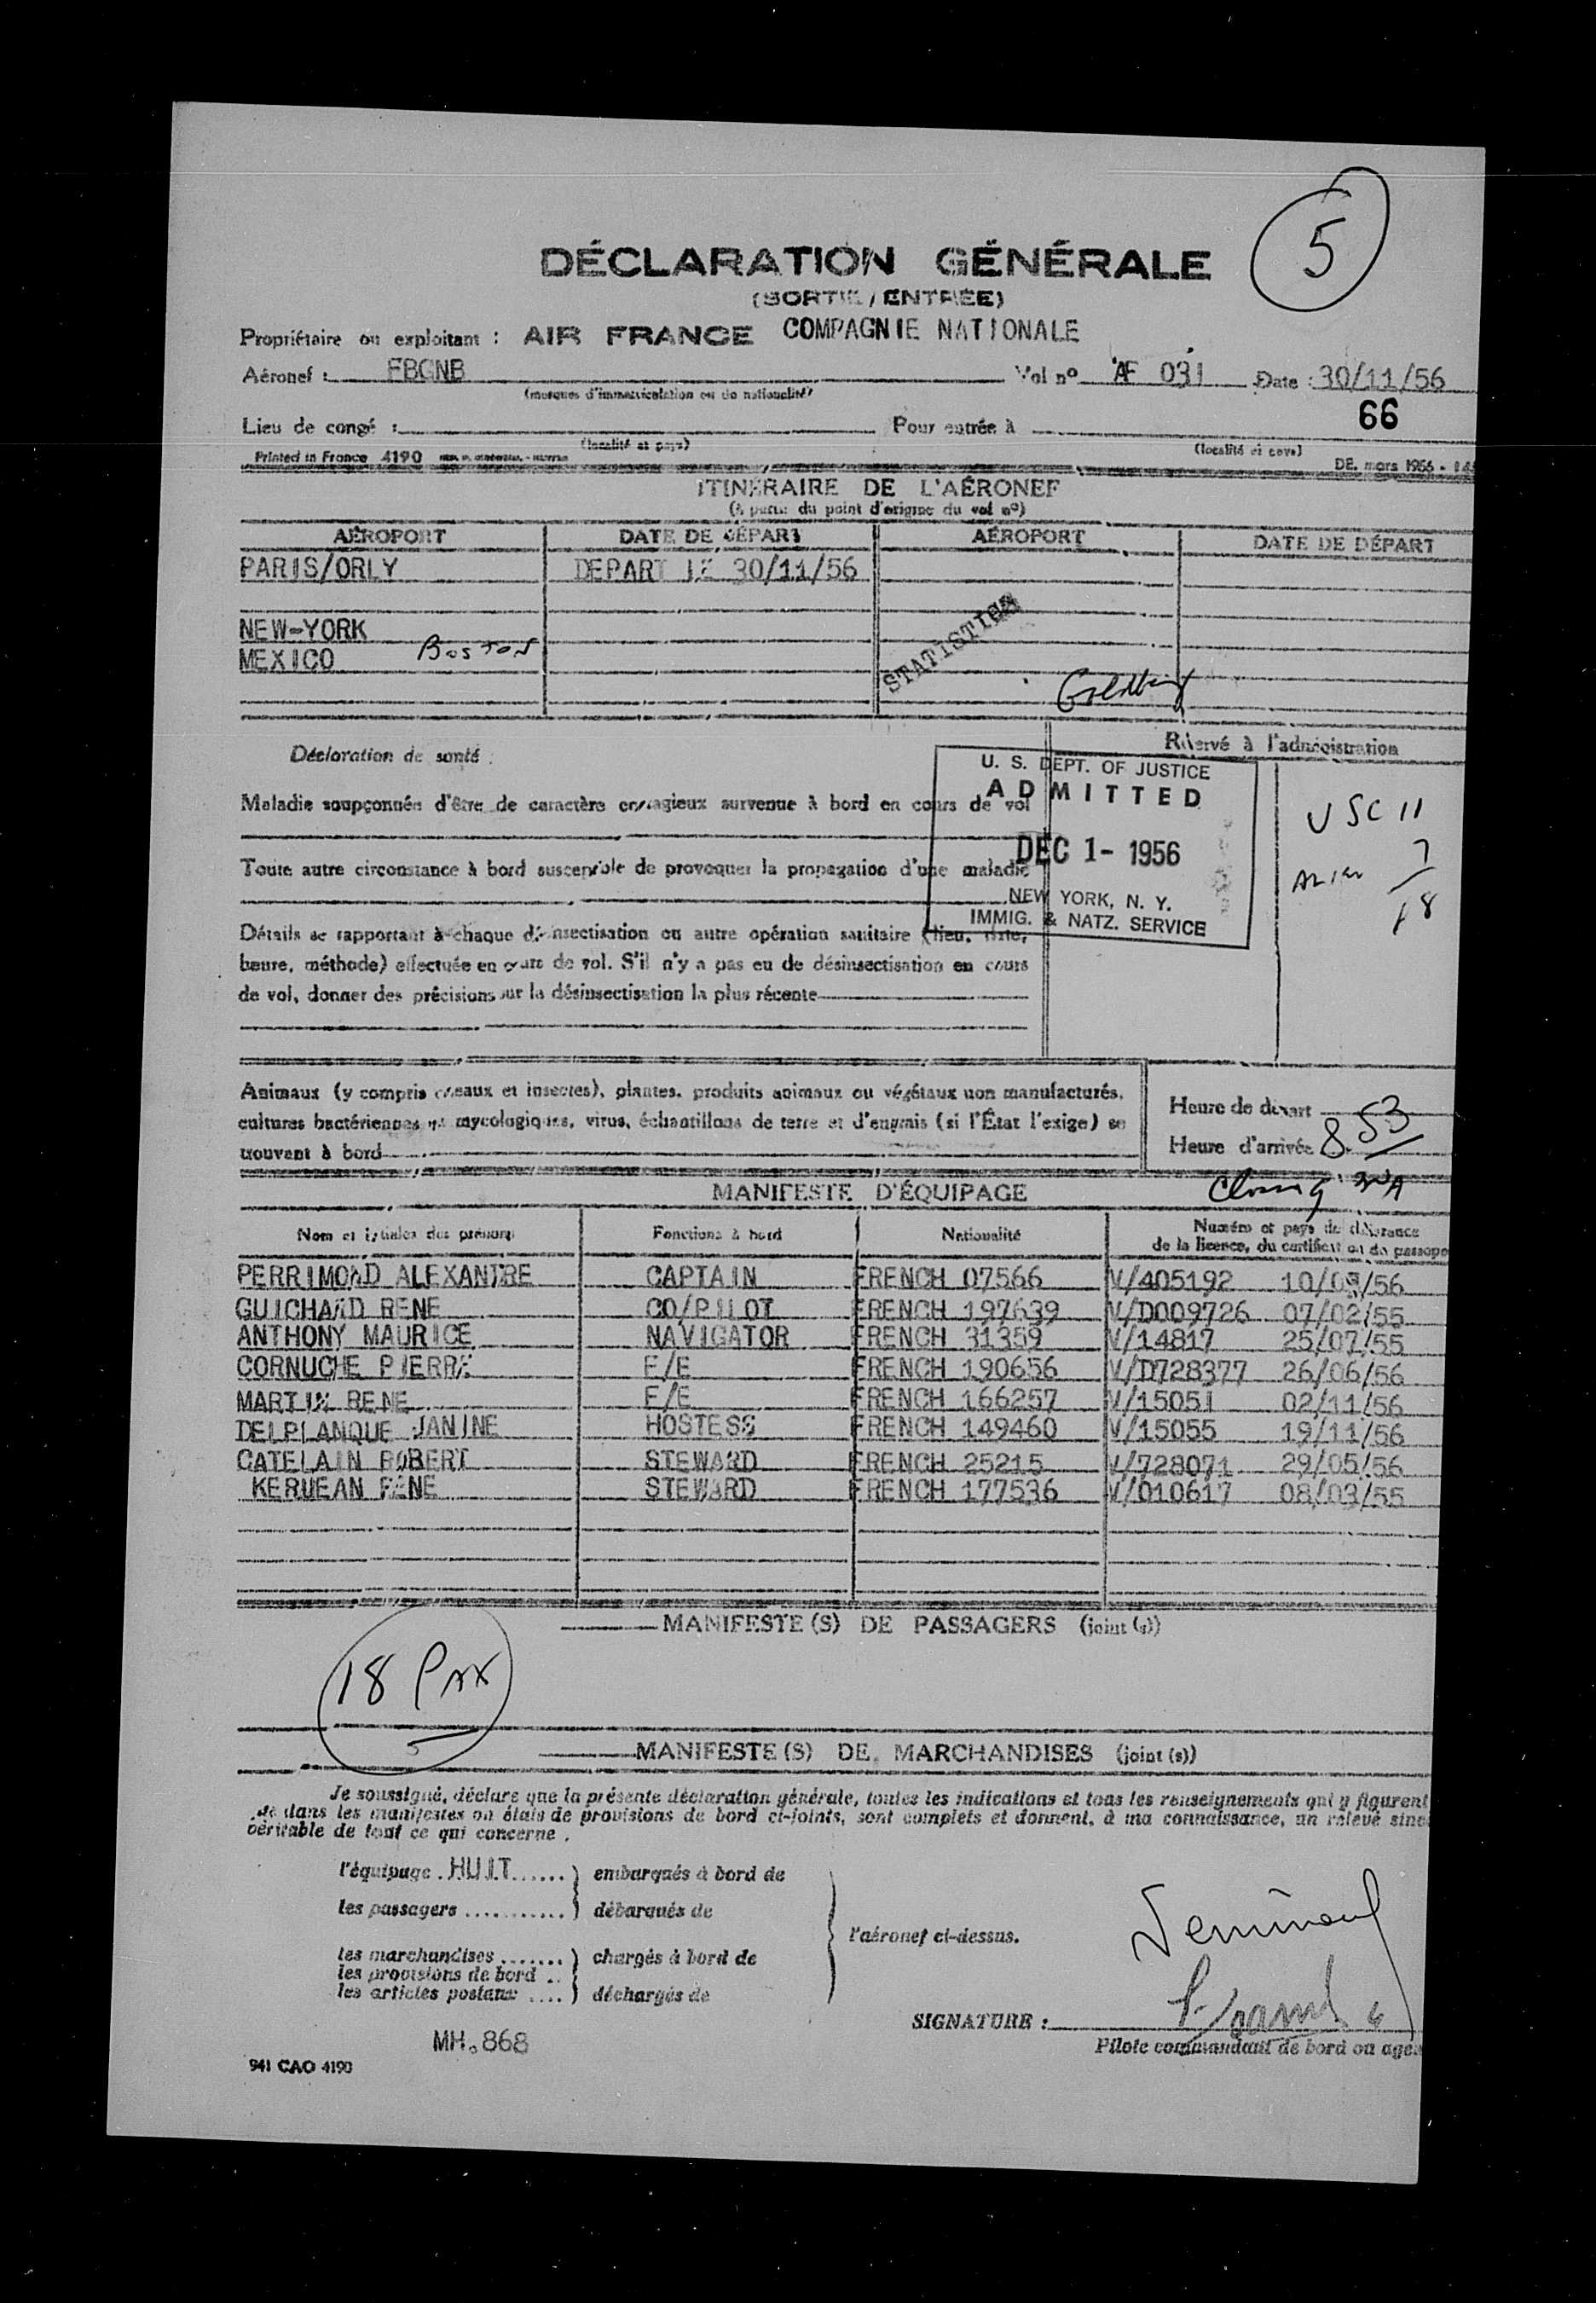 5
DÉCLARATION GÉNÉRALE
(SORTIE / ENTRÉE)
Propriétaire ou exploitant : AIR FRANCE COMPAGNIE NATIONALE
Aéronef : FBGNB Vol nº AF 031 Date : 30/11/56
(marques d'immatriculation ou de nationalité)
66
Lieu de congé : Pour entrée à
(localité et pays) (localité et pays)
Printed in France 4190 DE. mars 1956
ITINÉRAIRE DE L'AÉRONEF
(à partir du point d'origine du vol nº)
AÉROPORT DATE DE DÉPART AÉROPORT DATE DE DÉPART
PARIS/ORLY DEPART LE 30/11/56
NEW-YORK
MEXICO BOSTON
STATISTICS
Réservé à l'administration
Déclaration de santé :
U. S. DEPT. OF JUSTICE
ADMITTED
DEC 1- 1956
NEW YORK, N. Y.
IMMIG. & NATZ. SERVICE
USC 11
ALIEN 7
18
Maladie soupçonnée d'être de caractère contagieux survenue à bord en cours de vol
Toute autre circonstance à bord susceptible de provoquer la propagation d'une maladie
Détails se rapportant à chaque désinsectisation ou autre opération sanitaire (lieu, date,
heure, méthode) effectuée en cours de vol. S'il n'y a pas eu de désinsectisation en cours
de vol, donner des précisions sur la désinsectisation la plus récente
Animaux (y compris oiseaux et insectes), plantes, produits animaux ou végétaux non manufacturés,
cultures bactériennes et mycologiques, virus, échantillons de terre et d'engrais (si l'État l'exige) se
trouvant à bord
Heure de départ
Heure d'arrivée 8.53
MANIFESTE D'ÉQUIPAGE
Nom et initiales des prénoms Fonctions à bord Nationalité Numéro et pays de délivrance
de la licence, du certificat ou du passepo
PERRIMOND ALEXANDRE CAPTAIN FRENCH 07566 V/405192 10/09/56
GUICHARD RENE CO/PILOT FRENCH 197639 V/D009726 07/02/55
ANTHONY MAURICE NAVIGATOR FRENCH 31359 V/14817 25/07/55
CORNUCHE PIERRE F/E FRENCH 190656 V/D728377 26/06/56
MARTIN RENE F/E FRENCH 166257 V/15051 02/11/56
DELPLANQUE JANINE HOSTESS FRENCH 149460 V/15055 19/11/56
CATELAIN ROBERT STEWARD FRENCH 25215 V/728071 29/05/56
KERUEAN RENE STEWARD FRENCH 177536 V/010617 08/03/55
MANIFESTE (S) DE PASSAGERS (joint (s))
18 PAX
MANIFESTE (S) DE MARCHANDISES (joint (s))
Je soussigné, déclare que la présente déclaration générale, toutes les indications et tous les renseignements qui y figurent
dans les manifestes ou états de provisions de bord ci-joints, sont complets et donnent, à ma connaissance, un relevé sinc
véritable de tout ce qui concerne .
l'équipage . HUIT ...... ) embarqués à bord de
les passagers ........... ) débarqués de
l'aéronef ci-dessus.
les marchandises ....... ) chargés à bord de
les provisions de bord ..
les articles postaux .... ) déchargés de
SIGNATURE :
Pilote commandant de bord ou age
MH.868
941 CAO 4190